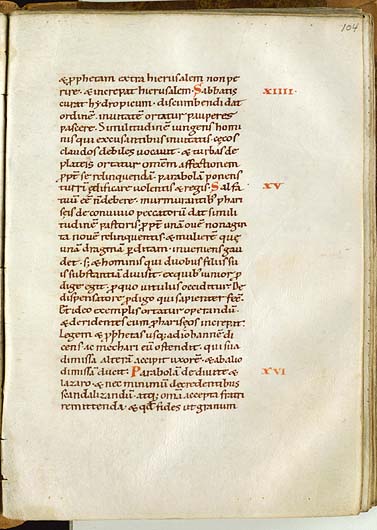 104
& p̄phetam extra hierusalem non pe
rire· & increpat hierusalem· Sabbatis XIIII·
curat hydropicum· discumbendi dat
ordinē· inuitatē ortatur pauperes
pascere· Similitudinē iungens homi
nis qui excusantibus inuitatis· cęcos
claudos debiles uocauit· & turbas de
plateis ortatur omnem affectionem
ppt̄ se relinquendā· parabolā ponens
turrī ędificare uolentis & regis· Sal fa XV
tuū eē n̄ debere· murmurantib; phari
sęis de conuiuio peccatorū dat simili
tudinē pastoris· ppt̄ unā ouē nonagin
ta nouē relinquentis· & mulierē quę
unā dragmā p̄ditam· inueniens gau
det· s; & hominis qui duobus filiis su
is substantiā diuisit· ex quib; iunior p
dige egit· p quo uitulus occiditur De
dispensatore pdigo qui sapienter fec̄·
Et ideo exemplis ortatur operandū·
& deridentes eum pharisęos increpat·
Legem & pphetas usq; ad iohannē di
cens ac mechari eū ostendit· qui sua
dimissa alterā accipit uxorē· & ab alio
dimissā ducit· Parabolā de diuite & XVI
lazaro· & nec minimū de credentibus
scandalizandū· atq; om̄a accepta fratri
remittenda· & qđ fides ut granum